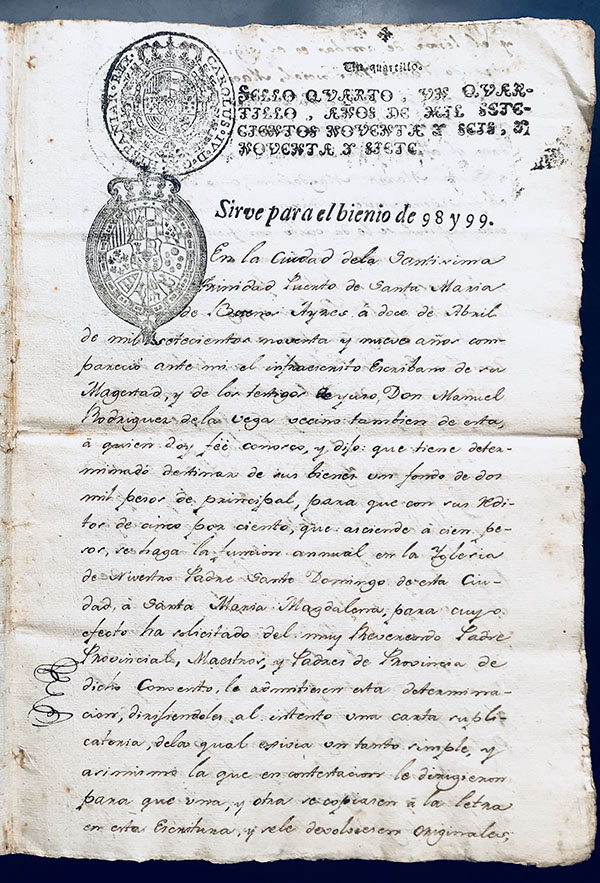 HISPANIAR. REX. CAROLUS. IV. D. G.
Un quartillo.
SELLO QVARTO, VN QVAR-
TILLO, AÑOS DE MIL SETE-
CIENTOS NOVENTA Y SEIS, Y
NOVENTA Y SIETE.
Sirve para el bienio de 98 y 99.
En la Ciudad dela Santissima
Trinidad Puerto de Santa Maria
de Buenos Ayres à doce de Abril
de mil setecientos noventa y nueve años com-
pareció ante mi el infraescrito Escribano de su
Magestad, y de los testigos de yuso, Don Manuel
Rodriguez dela Vega vecino tambien de esta,
à quien doy feè conosco, y dijo: que tiene deter-
minado destinar de sus bienes un fondo de dos
mil pesos de principal, para que con sus redi-
tos de cinco por ciento, que asciende à cien pe-
sos, se haga la funcion annual en la Yglesia
de Nuestro Padre Santo Domingo de esta Ciu-
dad, à Santa Maria Magdalena, para cuyo
efecto ha solicitado del muy Reverendo Padre
Provincial, Maestros, y Padres de Provincia de
dicho Convento, le admitiesen esta determina-
cion, dirijiendoles al intento una carta supli-
catoria, dela qual exivia un tanto simple, y
asimismo la que en contestacion le dirigieron
para que una, y otra se copiasen à la letra
en esta Escritura, y sele devolviesen originales;